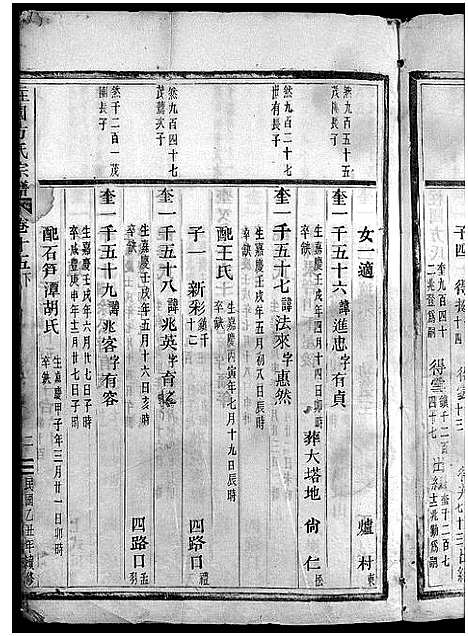 女一適
爐村東
然九百五十五
茂陵長子
奎一千五十六諱進忠字有貞
生嘉慶壬戌年四月十四日卯時
卒缺
葬大塔地
尙仁
然九百二十七
世有長子
奎一千五十七諱法來字惠然
生嘉慶壬戌年五月初八日辰時
卒缺
配王氏
生嘉慶丙寅年七月十九日辰時
卒缺
子一
新彩
四路口禮
然九百四十七
茂薦次子
奎一千五十八諱兆英字育
生嘉慶壬戌年五月十六日亥時
卒缺
四路口
然千二百一茂
園長子
奎一千五十九諱兆容字有容
生嘉慶壬戌年六月廿七日子時
卒咸豐庚申年三月廿七日子時
配石筍潭胡氏
生嘉慶甲子年三月廿一日卯時
卒缺
方氏宗譜
卷十五下
民國乙丑年續修
子四
奎九百四十
二兆登爲嗣
得雲
四十七
出繼
士兆勤爲嗣